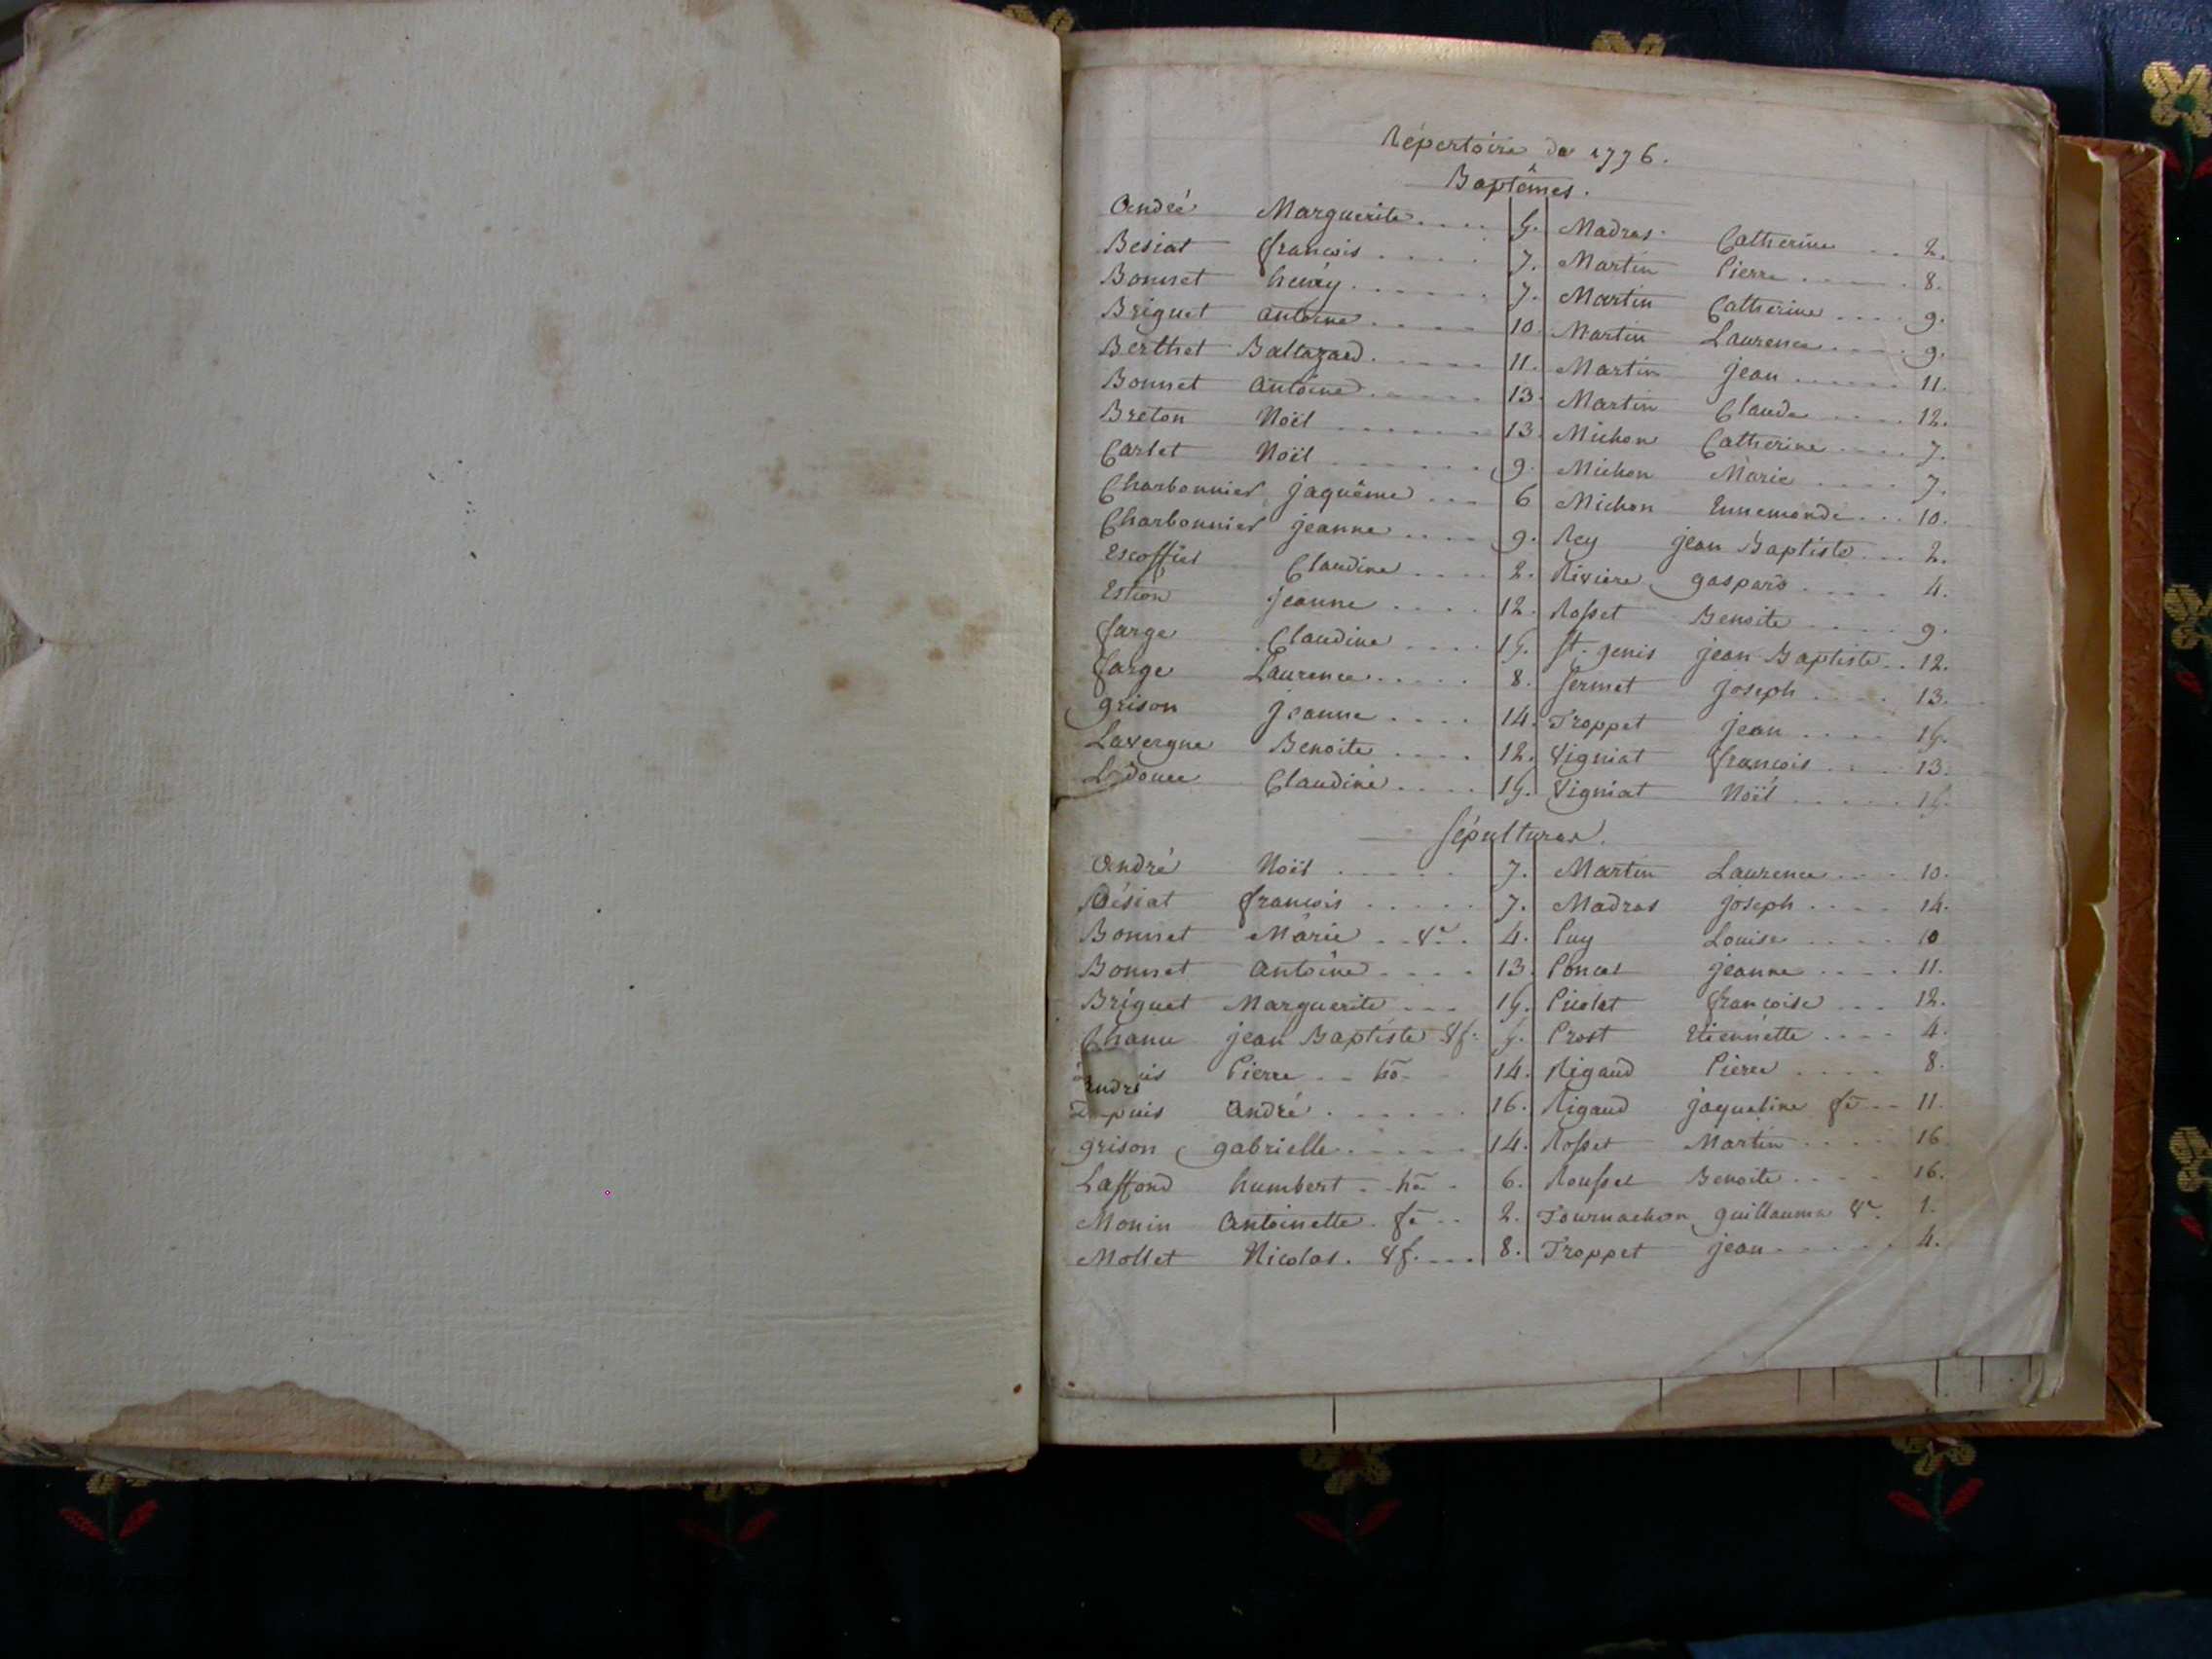 Répertoire de 1776.
Baptêmes.
André Marguerite .... 5. Madras Catherine .. 2.
Besiat françois .... 7. Martin Pierre ..... 8.
Bonnet henry ...... 7. Martin Catherine .... 9.
Briguet antoine .... 10. Martin Laurence .... 9.
Berthet Baltazard ..... 11. Martin jean ...... 11.
Bonnet antoine ...... 13. Martin Claude .... 12.
Breton Noël ...... 13. Michon Catherine .... 7.
Carlet Noël ...... 9. Michon Marie .... 7.
Charbonnier jaquême ... 6 Michon Ennemonde ... 10.
Charbonnier jeanne .... 9. Rey jean Baptiste ... 2.
Escoffier Claudine .... 2. Rivière gaspard .... 4.
Estion jeanne .... 12. Rosset Benoite .... 9.
farge Claudine .... 15. St. genis jean Baptiste .. 12.
farge Laurence ..... 8. Sermet Joseph .... 13.
grison jeanne .... 14. Troppet jean .... 15.
Lavergne Benoite .... 12. Vigniat françois .... 13.
Claudine .... 15. Vigniat Noël ..... 15.
Sépultures.
André Noël ..... 7. Martin Laurence ... 10.
Bésiat françois ..... 7. Madras joseph .... 14.
Bonnet Marie .. Ve. 4. Puy Louise .... 10
Bonnet antoine .... 13. Poncet jeanne .... 11.
Briguet Marguerite ... 15. françoise ... 12.
Chanu jean Baptiste Vf. 5. Prost Etiennette .... 4.
uis Pierre .. ho. 14. Rigaud Pierre .... 8.
andré
puis André ...... 16. Rigaud jaqueline fe .. 11.
grison gabrielle ..... 14. Rosset Martin .... 16
Laffond humbert .. ho. 6. Rousset Benoite .... 16.
Monin Antoinette . fe .. 2. Tournachon guillaume Ve. 1.
Mollet Nicolas . Vf. ... 8. Troppet jean ..... 4.